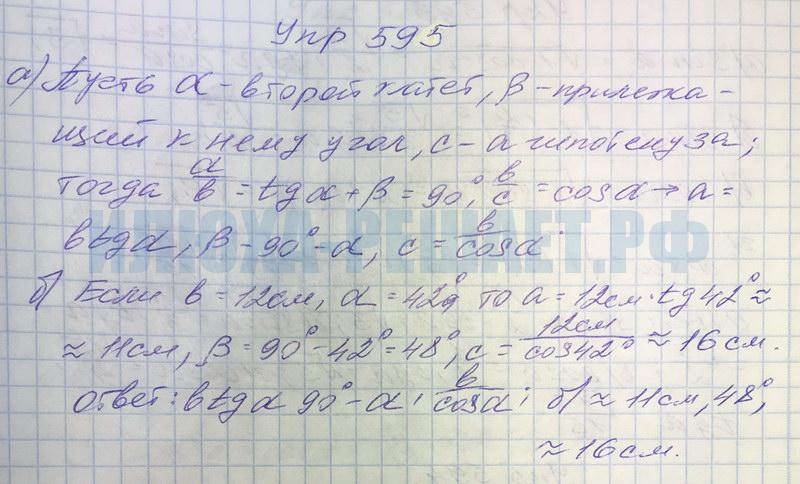 Упр 595
а) Пусть α - второй катет, β - прилежа-
щий к нему угол, с - а гипотенуза;
тогда a/b = tgα + β = 90°, b/c = cosα → a =
b tgα, β - 90° - α, c = b/cosα.
ИЛЮХА-РЕШАЕТ.РФ
б) Если b = 12см, α = 42° то a = 12см · tg42° ≈
≈ 11см, β = 90° - 42° = 48°, c = 12см/cos42° ≈ 16 см.
ответ: b tgα 90° - α; b/cosα; б) ≈ 11см, 48°,
≈ 16см.